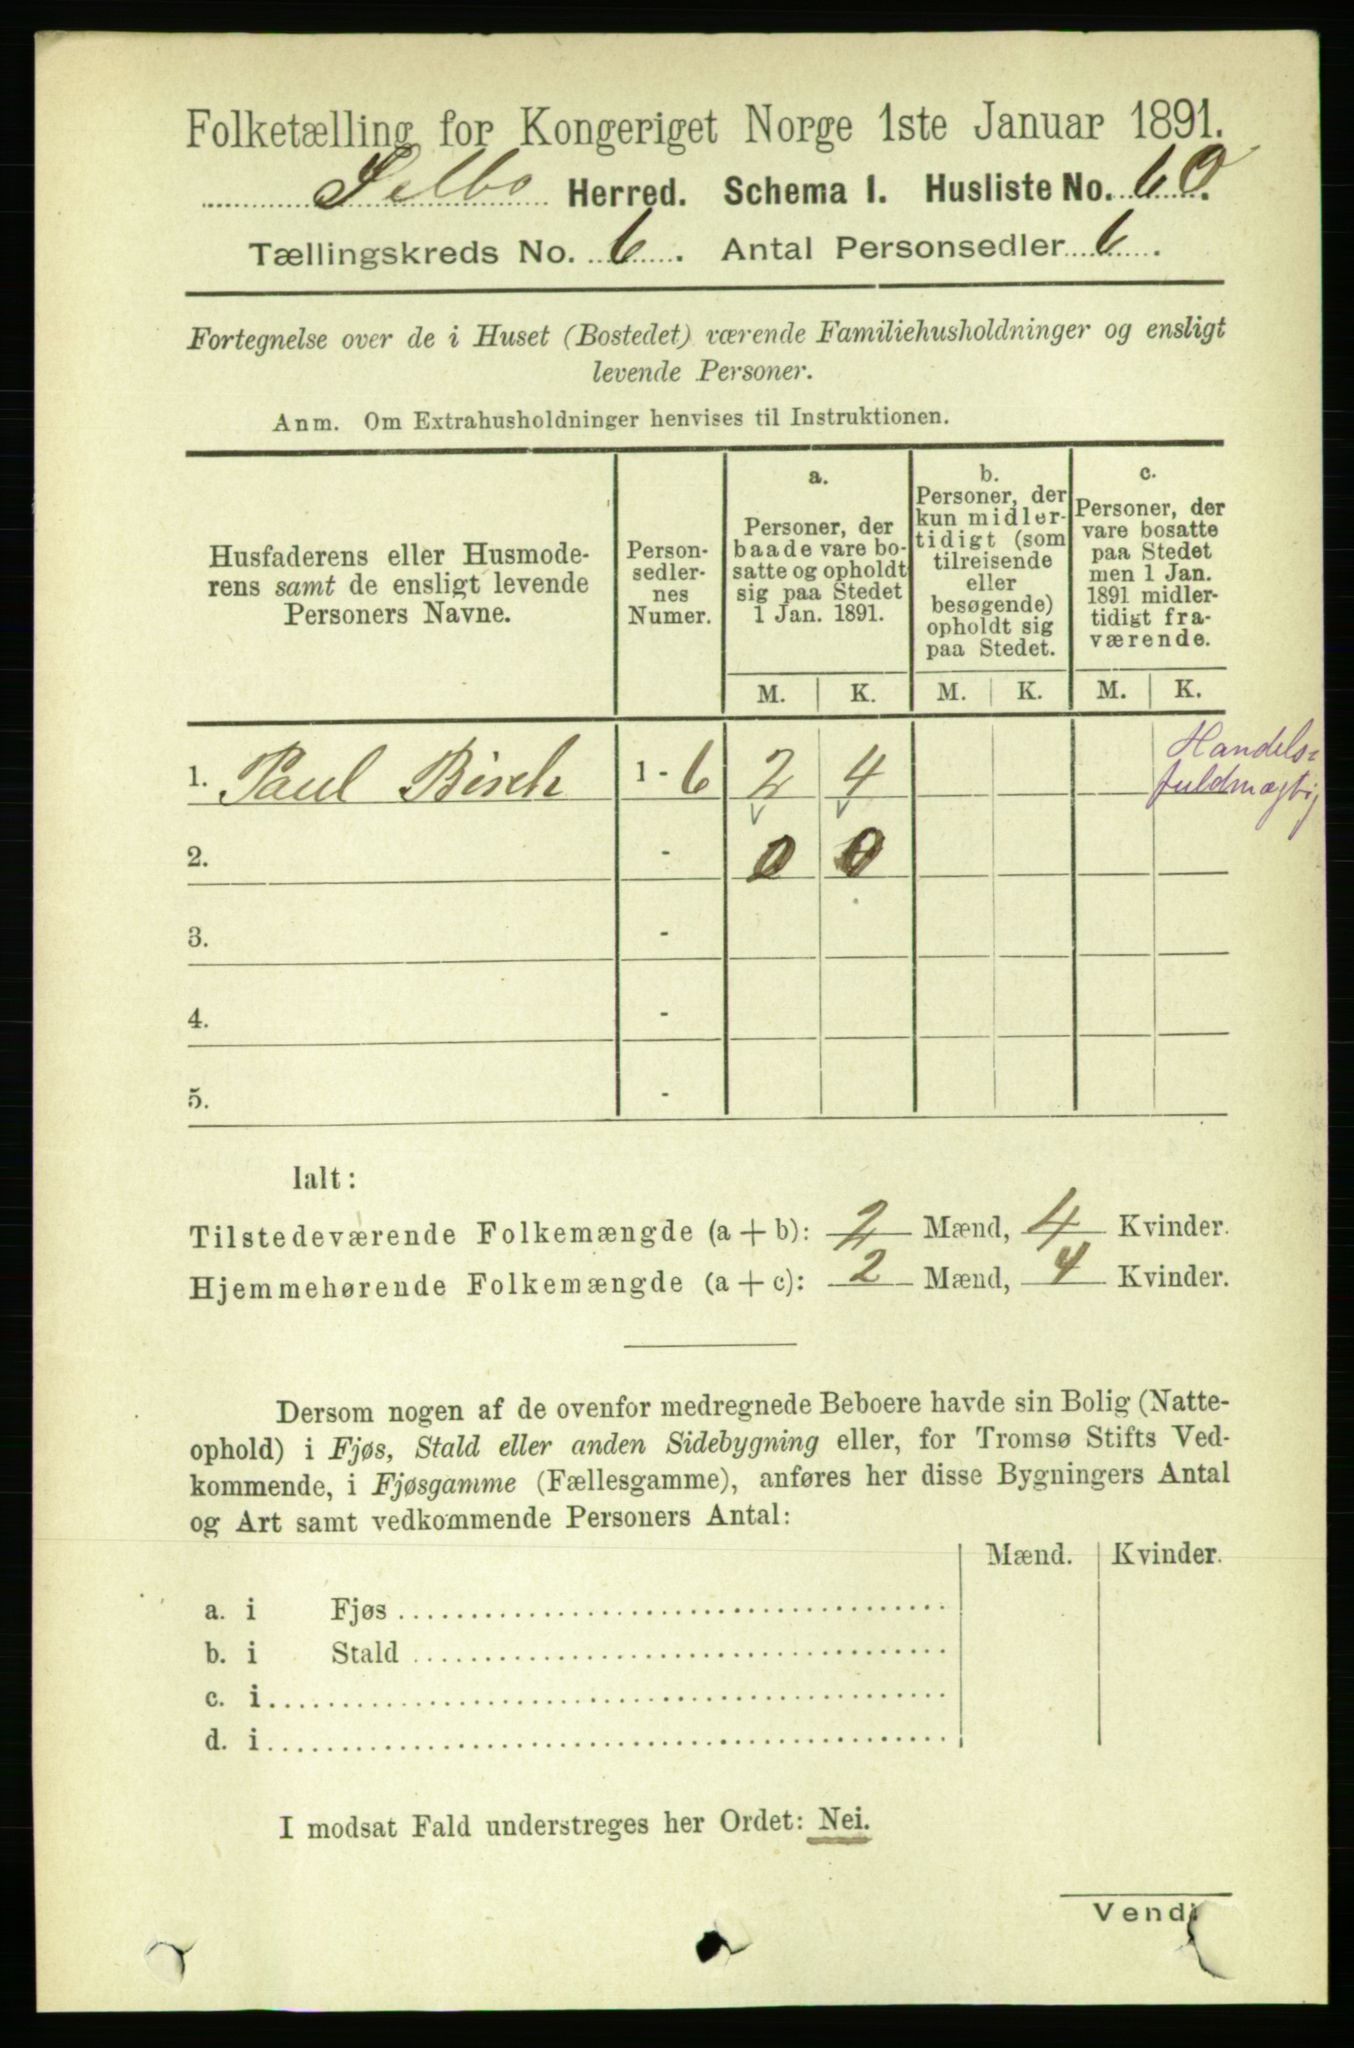 Folketælling for Kongeriget Norge 1ste Januar 1891.
Selbo Herred. Schema 1. Husliste No. 60.
Tællingskreds No. 6. Antal Personsedler 6.
Fortegnelse over de i Huset (Bostedet) værende Familiehusholdninger og ensligt
levende Personer.
Anm. Om Extrahusholdninger henvises til Instruktionen.
Husfaderens eller Husmode-
rens samt de ensligt levende
Personers Navne.
Person-
sedler-
nes
Numer.
a.
Personer, der
baade vare bo-
satte og opholdt
sig paa Stedet
1 Jan. 1891.
b.
Personer, der
kun midler-
tidigt (som
tilreisende
eller
besøgende)
opholdt sig
paa Stedet.
c.
Personer, der
vare bosatte
paa Stedet
men 1 Jan.
1891 midler-
tidigt fra-
værende.
M. K. M. K. M. K.
1. Paul Birch 1 - 6 2 4
Handels-
fuldmægtig
2. - 0 0
3. -
4. -
5. -
Ialt:
Tilstedeværende Folkemængde (a + b): 2 Mænd, 4 Kvinder.
Hjemmehørende Folkemængde (a + c): 2 Mænd, 4 Kvinder.
Dersom nogen af de ovenfor medregnede Beboere havde sin Bolig (Natte-
ophold) i Fjøs, Stald eller anden Sidebygning eller, for Tromsø Stifts Ved-
kommende, i Fjøsgamme (Fællesgamme), anføres her disse Bygningers Antal
og Art samt vedkommende Personers Antal:
Mænd. Kvinder.
a. i Fjøs
b. i Stald
c. i
d. i
I modsat Fald understreges her Ordet: Nei.
Vend!